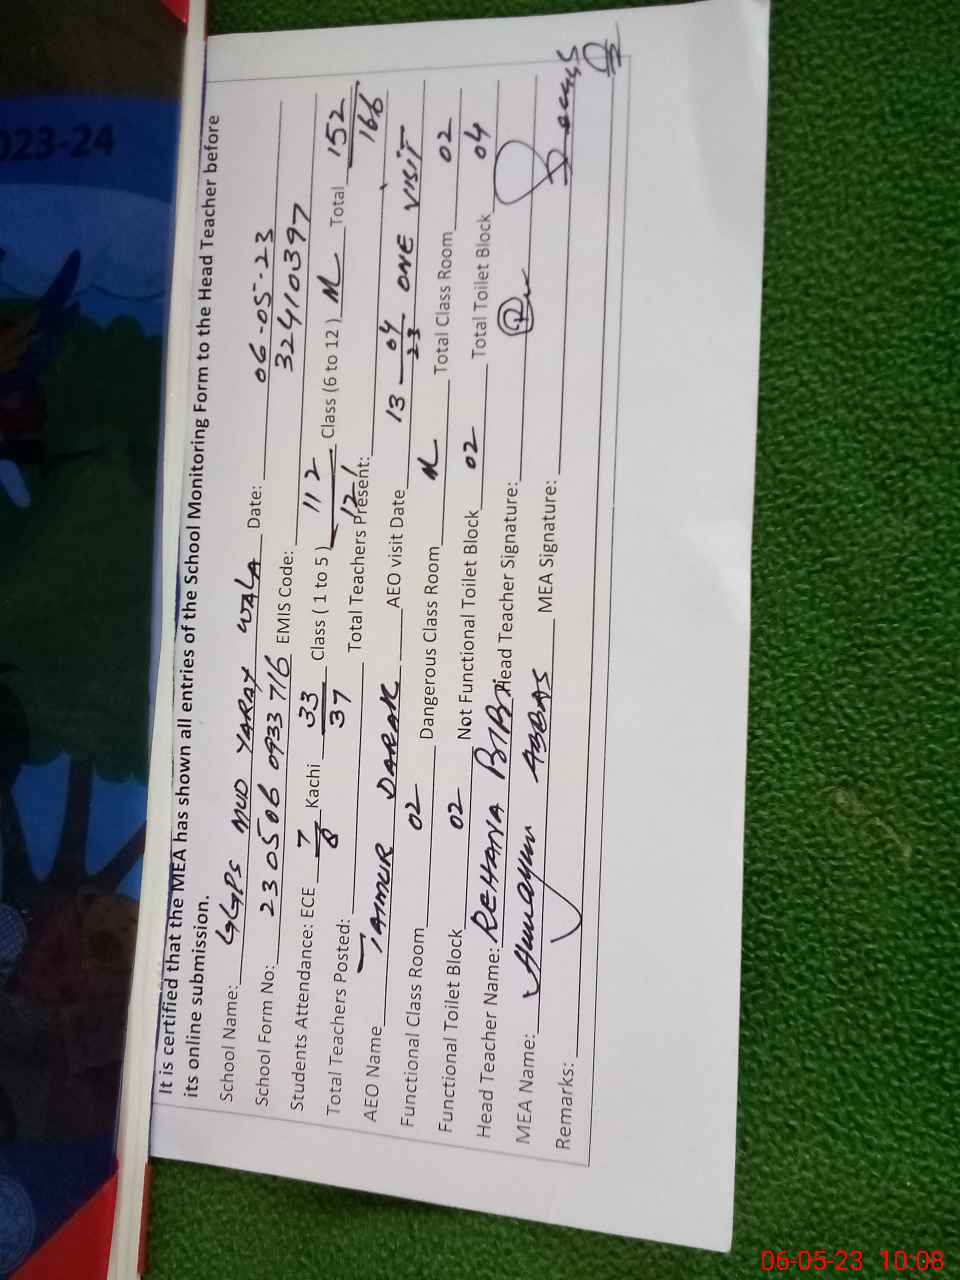 023-24
It is certified that the MEA has shown all entries of the School Monitoring Form to the Head Teacher before
its online submission.
School Name: GGPS MUD YARAY WALA Date: 06-05-23
School Form No: 23 05 06 0933 716 EMIS Code: 32410397
Students Attendance: ECE 7/8 Kachi 33/37 Class ( 1 to 5 ) 112/121 Class (6 to 12 ) Total 152/166
Total Teachers Posted: Total Teachers Present:
AEO Name TAIMUR DARAK AEO visit Date 13 04/23 ONE VISIT
Functional Class Room 02 Dangerous Class Room Total Class Room 02
Functional Toilet Block 02 Not Functional Toilet Block 02 Total Toilet Block 04
Head Teacher Name: REHANA BIBI Head Teacher Signature:
MEA Name: Humayun ABBAS MEA Signature:
Remarks:
06-05-23 10:08